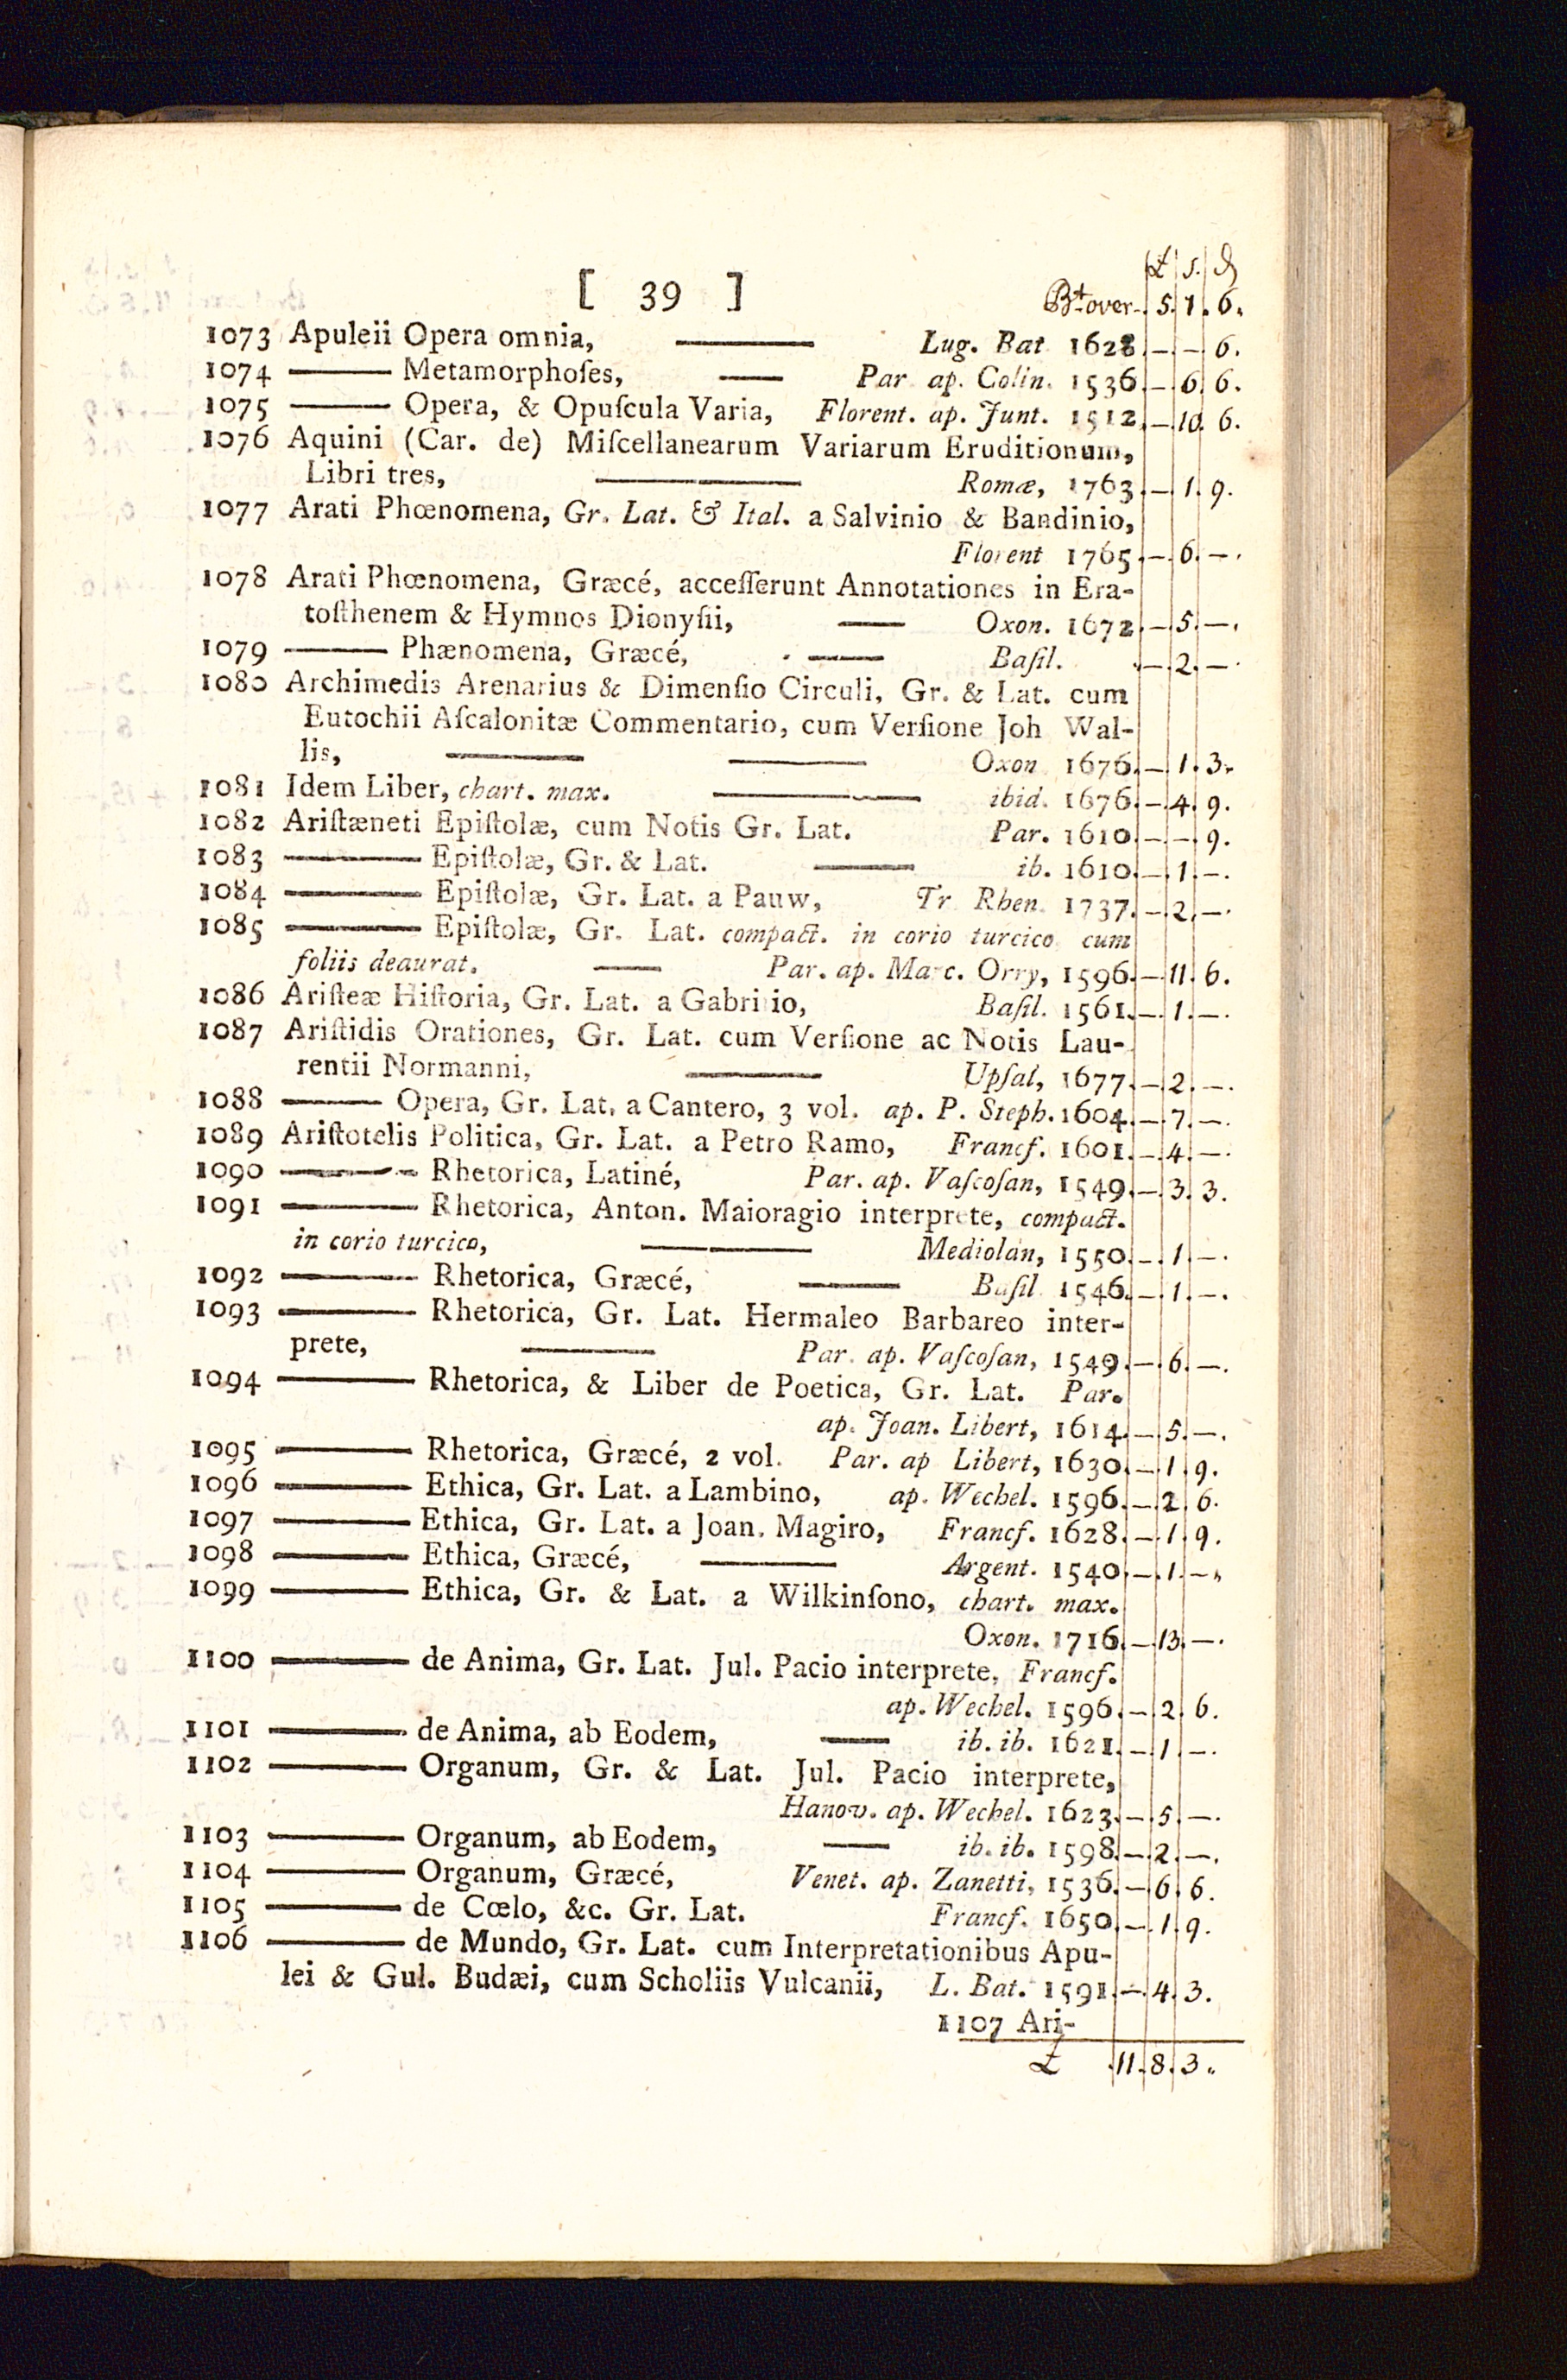 £ s. d
[ 39 ] Bt over - 5. 7. 6.
1073 Apuleii Opera omnia, ——— Lug. Bat 1628 . — . — 6.
1074 ——— Metamorphoſes, —— Par ap. Colin. 1536 . — . 6. 6.
1075 ——— Opera, & Opuſcula Varia, Florent. ap. Junt. 1512. — . 10. 6.
1076 Aquini (Car. de) Miſcellanearum Variarum Eruditionum,
Libri tres, ——— Romæ, 1763. — . 1. 9.
1077 Arati Phœnomena, Gr. Lat. & Ital. a Salvinio & Bandinio,
Florent 1765. — . 6. — .
1078 Arati Phœnomena, Græcé, acceſſerunt Annotationes in Era-
toſthenem & Hymnos Dionyſii, —— Oxon. 1672. — . 5. — .
1079 ——— Phænomena, Græcé, —— Baſil. . — . 2. — .
1080 Archimedis Arenarius & Dimenſio Circuli, Gr. & Lat. cum
Eutochii Aſcalonitæ Commentario, cum Verſione Joh Wal-
lis, ——— ——— Oxon 1676. — . 1. 3.
1081 Idem Liber, chart. max. ——— ibid. 1676. — . 4. 9.
1082 Ariſtæneti Epiſtolæ, cum Notis Gr. Lat. Par. 1610. — . — . 9.
1083 ——— Epiſtolæ, Gr. & Lat. ——— ib. 1610. — . 1. — .
1084 ——— Epiſtolæ, Gr. Lat. a Pauw, Tr Rhen. 1737. — . 2. — .
1085 ——— Epiſtolæ, Gr. Lat. compact. in corio turcico cum
foliis deaurat. —— Par. ap. Marc. Orry, 1596. — . 11. 6.
1086 Ariſteæ Hiſtoria, Gr. Lat. a Gabrinio, Baſil. 1561. — . 1. — .
1087 Ariſtidis Orationes, Gr. Lat. cum Verſione ac Notis Lau-
rentii Normanni, ——— Upſal, 1677. — . 2. — .
1088 ——— Opera, Gr. Lat. a Cantero, 3 vol. ap. P. Steph. 1604. — . 7. — .
1089 Ariſtotelis Politica, Gr. Lat. a Petro Ramo, Francf. 1601. — . 4. — .
1090 ——— Rhetorica, Latiné, Par. ap. Vaſcoſan, 1549. — . 3. 3.
1091 ——— Rhetorica, Anton. Maioragio interprete, compact.
in corio turcico, ——— Mediolan, 1550. — . 1. — .
1092 ——— Rhetorica, Græcé, ——— Baſil 1546. — . 1. — .
1093 ——— Rhetorica, Gr. Lat. Hermaleo Barbareo inter-
prete, ——— Par. ap. Vaſcoſan, 1549. — . 6. — .
1094 ——— Rhetorica, & Liber de Poetica, Gr. Lat. Par.
ap. Joan. Libert, 1614. — . 5. — .
1095 ——— Rhetorica, Græcé, 2 vol. Par. ap Libert, 1630. — . 1. 9.
1096 ——— Ethica, Gr. Lat. a Lambino, ap. Wechel. 1596. — . 2. 6.
1097 ——— Ethica, Gr. Lat. a Joan. Magiro, Francf. 1628. — . 1. 9.
1098 ——— Ethica, Græcé, ——— Argent. 1540. — . 1. — .
1099 ——— Ethica, Gr. & Lat. a Wilkinſono, chart. max.
Oxon. 1716. — . 13. — .
1100 ——— de Anima, Gr. Lat. Jul. Pacio interprete, Francf.
ap. Wechel. 1596. — . 2. 6.
1101 ——— de Anima, ab Eodem, —— ib. ib. 1621. — . 1. — .
1102 ——— Organum, Gr. & Lat. Jul. Pacio interprete,
Hanov. ap. Wechel. 1623. — . 5. — .
1103 ——— Organum, ab Eodem, —— ib. ib. 1598. — . 2. — .
1104 ——— Organum, Græcé, Venet. ap. Zanetti, 1536. — . 6. 6.
1105 ——— de Cœlo, &c. Gr. Lat. Francf. 1650. — . 1. 9.
1106 ——— de Mundo, Gr. Lat. cum Interpretationibus Apu-
lei & Gul. Budæi, cum Scholiis Vulcanii, L. Bat. 1591. — . 4. 3.
1107 Ari-
£ . 11. 8. 3.